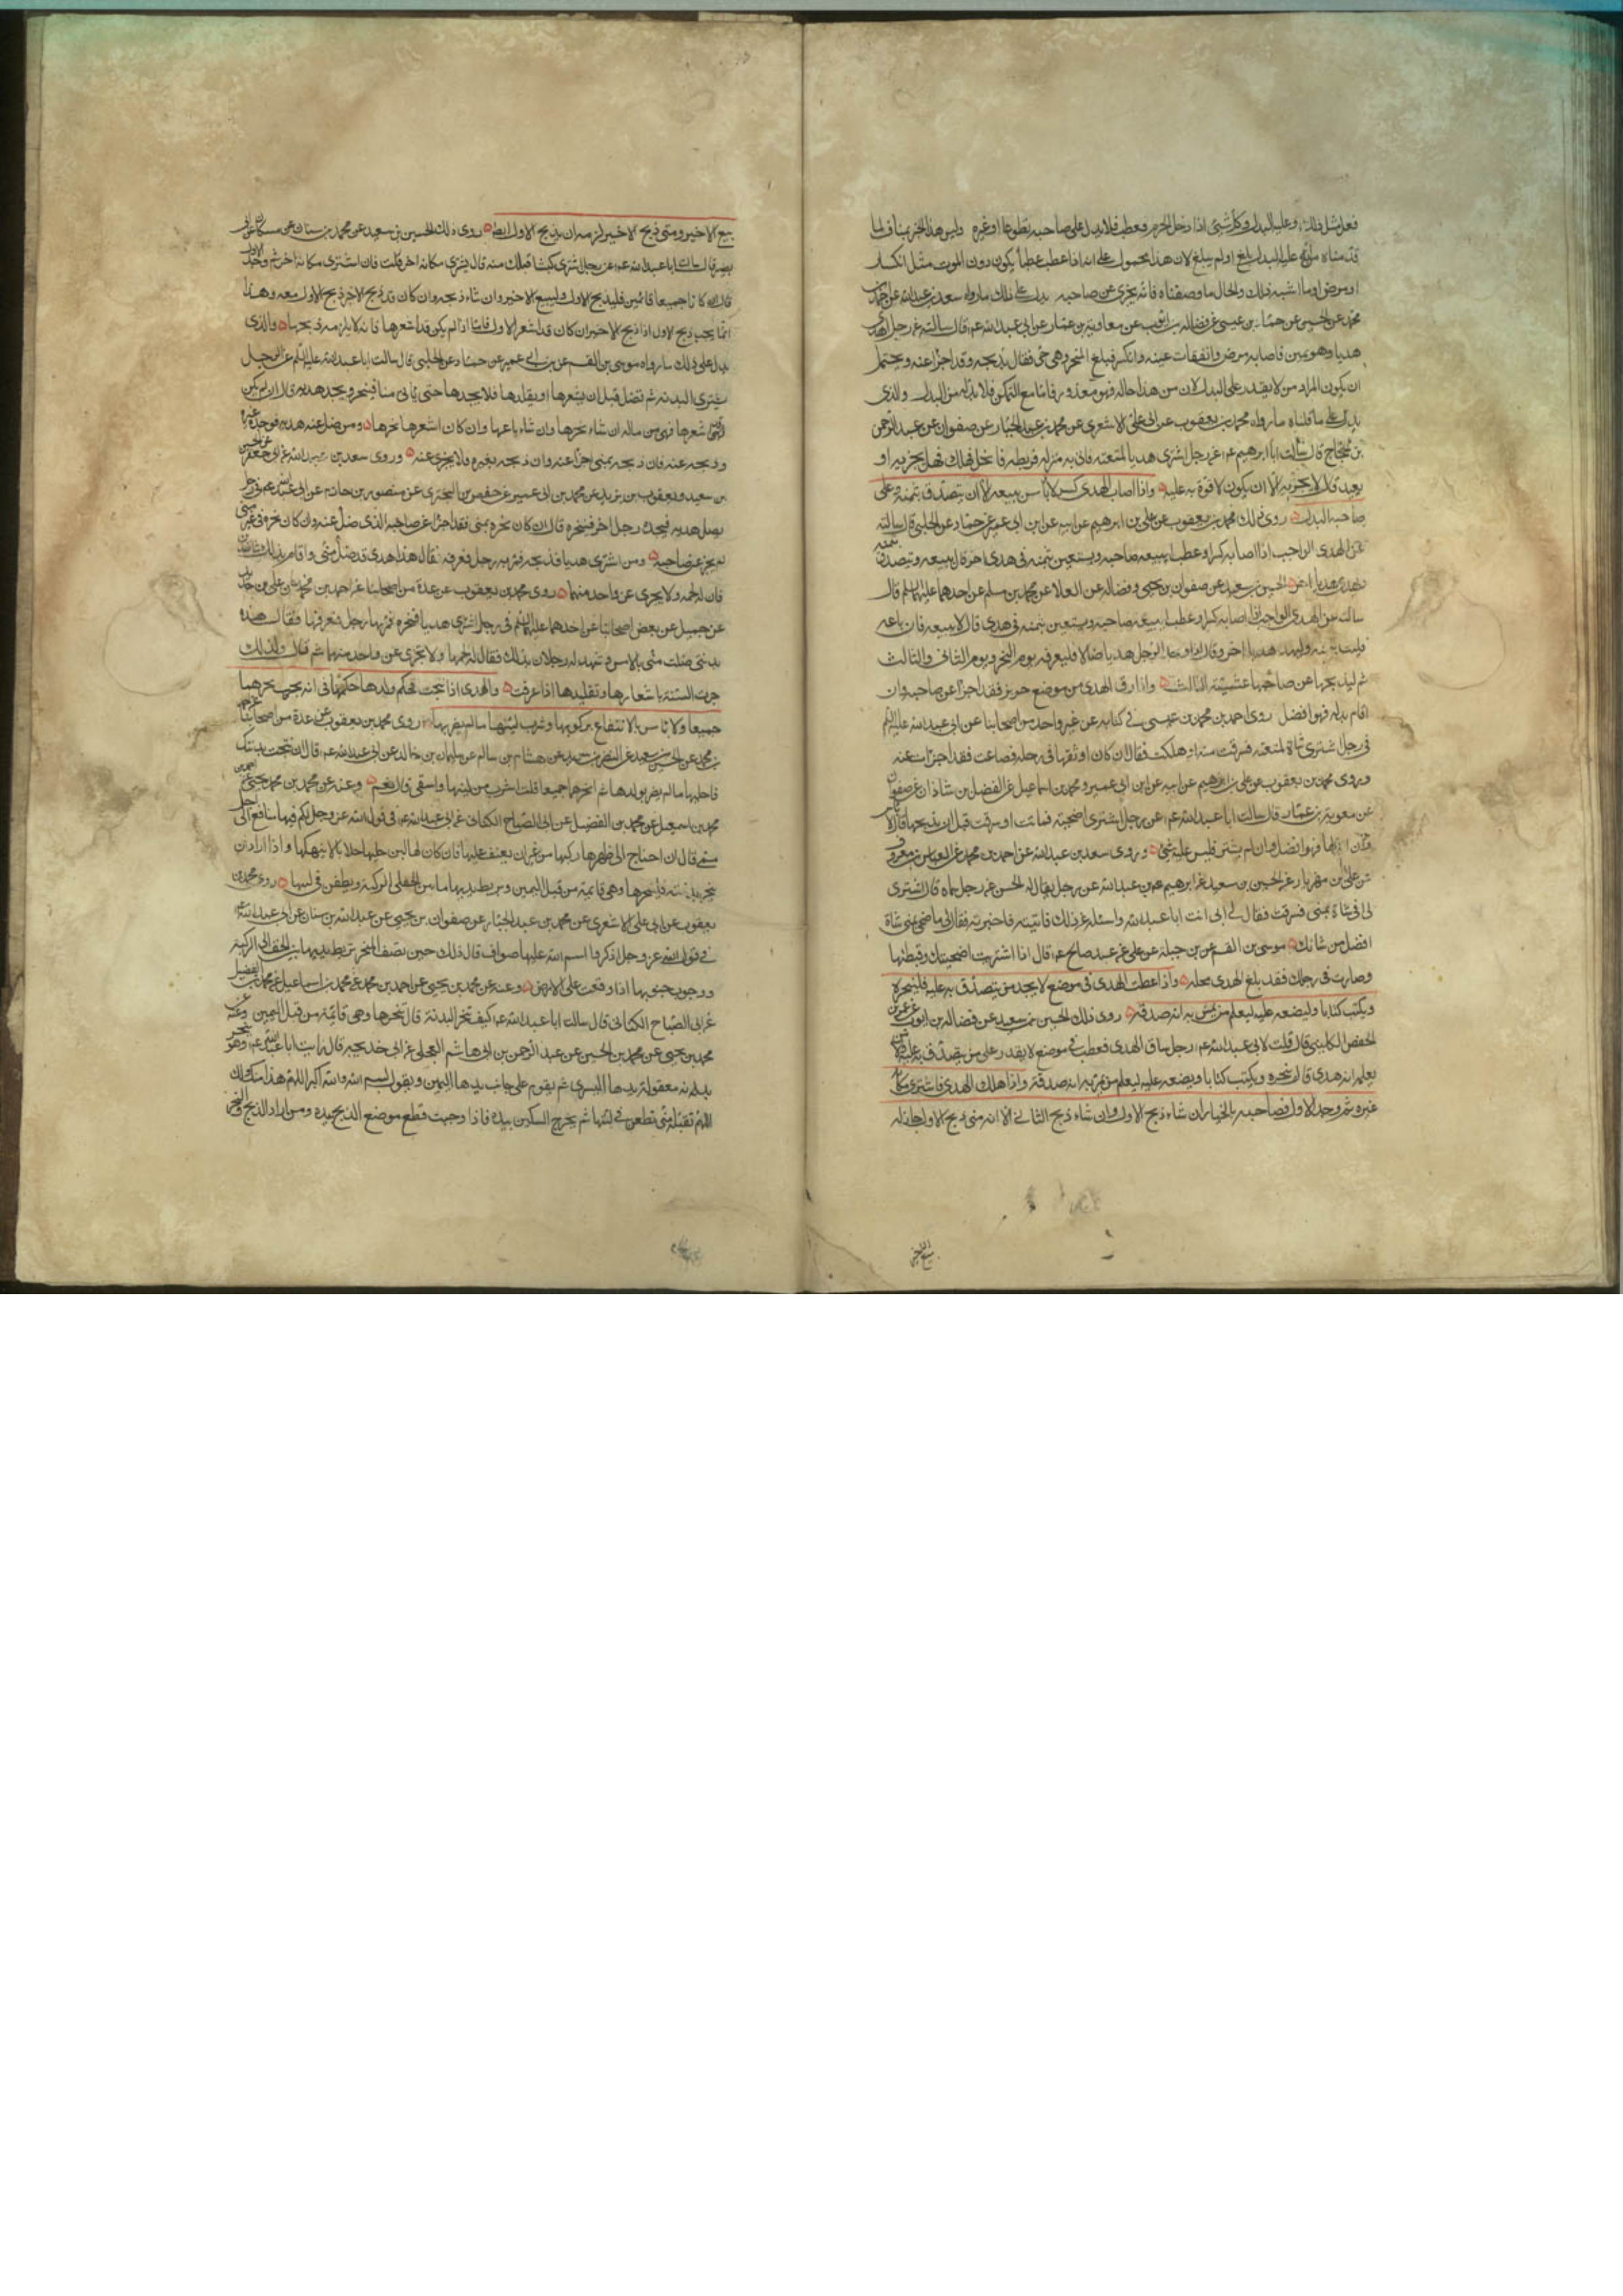 فعل مثل ذلك وعليه البدل وكل شيئ اذا دخل الحرم فعطب فلا بدل على صاحبه تطوعا او غيره وليس هذا الخبر بمناف لما
قدمناه من ان عليه البدل بلغ او لم يبلغ لان هذا محمول على انه اذا عطب عطبا يكون دون الموت مثل انكسار
او مرض او ما اشبه ذلك والحال ما وصفناه فانه يجزى عن صاحبه يدل على ذلك ما رواه سعد بن عبد الله عن احمد بن
محمد عن الحسين عن حماد بن عيسى عن فضاله بن ايوب عن معاوية بن عمار عن ابى عبد الله عم قال سالته عن رجل اهدى
هديا وهو سمين فاصابه مرض وانفقات عينه وانكسر فبلغ المنحر وهى حى فقال يذبحه وقد اجزا عنه ويحتمل
ان يكون المراد من لا يقدر على البدل لان من هذا حاله فهو معذور فاما مع التمكن فلا بد له من البدل والذى
يدل على ما قلناه ما رواه محمد بن يعقوب عن ابى على الاشعرى عن محمد بن عبد الجبار عن صفوان عن عبد الرحمن
بن حجاج قال سالت ابا ابرهيم عم عن رجل اشترى هديا لمتعته فاتى به منزله فربطه فانحل فهلك فهل يجزيه او
يعيد قال لا يجزيه الا ان يكون لا قوة به عليه واذا اصاب الهدى كسر لا باس ببيعه الا ان يتصدق بثمنه وعلى
صاحبه البدل روى ذلك محمد بن يعقوب عن على بن ابرهيم عن ابيه عن ابن ابى عمير عن حماد عن الحلبى قال سالته
عن الهدى الواجب اذا اصابه كسر او عطب ايبيعه صاحبه ويستعين بثمنه فى هدى اخر قال يبيعه ويتصدق بثمنه
ويهدى هديا اخر الحسين بن سعيد عن صفوان بن يحيى وفضاله عن العلا عن محمد بن مسلم عن احدهما عليهما السلم قال
سالته عن الهدى الواجب اذا اصابه كسر او عطب ايبيعه صاحبه ويستعين بثمنه فى هدى قال لا يبيعه فان باعه
فليتصدق بثمنه وليهد هديا اخر وقال اذا وجد الرجل هديا ضالا فليعرفه يوم النحر ويوم الثانى والثالث
ثم ليذبحها عن صاحبها عشية الثالث واذا سرق الهدى من موضع حريز فقد اجزا عن صاحبه وان
اقام بدله فهو افضل روى احمد بن محمد بن عيسى فى كتابه عن غير واحد من اصحابنا عن ابى عبد الله عليه السلم
فى رجل اشترى شاة لمتعته فسرقت منه او هلكت فقال ان كان اوثقها فى رحله فضاعت فقد اجزات عنه
وروى محمد بن يعقوب عن على بن ابرهيم عن ابيه عن ابن ابى عمير ومحمد بن اسماعيل عن الفضل بن شاذان عن صفوان
عن معوية بن عمار قال سالت ابا عبد الله عم عن رجل اشترى اضحية فماتت او سرقت قبل ان يذبحها قال لا باس
وان ابدلها فهو افضل وان لم يشتر فليس عليه شئ وروى سعد بن عبد الله عن احمد بن محمد عن العباس بن معروف
عن على بن مهزيار عن الحسين بن سعيد عن ابرهيم بن عبد الله عن رجل يقال له الحسن عن رجل سماه قال اشترى
لى ابى شاة بمنى فسرقت فقال لى ابى ائت ابا عبد الله واسئله عن ذلك فاتيته فاخبرته فقال لى ما ضحى بمنى شاة
افضل من شاتك موسى بن القسم عن بن جبلة عن على عن عبد صالح عم قال اذا اشتريت اضحيتك وقبطتها
وصارت فى رحلك فقد بلغ الهدى محله واذا عطب الهدى فى موضع لا يجد من يتصدق به عليه فلينحره
ويكتب كتابا وليضعه عليه ليعلم من مر به انه صدقة روى ذلك الحسين بن سعيد عن فضاله بن ايوب عن عمر بن
الحفص الكلبينى قال قلت لابى عبد الله عم رجل ساق الهدى فعطب فى موضع لا يقدر على من يتصدق به عليه ولا من
يعلمه انه هدى قال ينحره ويكتب كتابا ويضعه عليه ليعلم من مر به انه صدقة واذا هلك الهدى فاشترى مكانه
غيره ثم وجد الاول فصاحبه بالخيار ان شاء ذبح الاول وان شاء ذبح الثانى الا انه متى ذبح الاول جاز له
بيع الاخير
بيع الاخير ومتى ذبح الاخير لزمه ان يذبح الاول ايضا روى ذلك الحسين بن سعيد عن محمد بن سنان عن بن مسكان عن ابى
بصير قال سالت ابا عبد الله عم عن رجل اشترى كبشا فهلك منه قال يشترى مكانه اخر قلت فان اشترى مكانه اخر ثم وجد الاول
قال ان كانا جميعا قائمين فليذبح الاول وليبيع الاخير وان شاء ذبحه وان كان قد ذبح الاخر ذبح الاول معه وهذا
انما يجب ذبح الاول اذا ذبح الاخير ان كان قد اشعر الاول فاما اذا لم يكن قد اشعرها فانه لا يلزمه ذبحها والذى
يدل على ذلك ما رواه موسى بن القسم عن بن ابى عمير عن حماد عن الحلبى قال سالت ابا عبد الله عليه السلم عن الرجل
يشترى البدنه ثم تضل قبل ان يشعرها او يقلدها فلا يجدها حتى ياتى منا فينحر ويجد هديه قال ان لم يكن
اشعرها فهى من ماله ان شاء نحرها وان شاء باعها وان كان اشعرها نحرها ومن ضل عنه هديه فوجده غيره
وذبحه عنه فان ذبحه بمنى اجزا عنه وان ذبحه بغيره فلا يجزى عنه وروى سعد بن عبد الله عن ابى جعفر عن الحسين
بن سعيد ويعقوب بن يزيد عن محمد بن ابى عمير عن حفص بن البخترى عن منصور بن حازم عن ابى عبد الله عم فى رجل
يضل هديه فيجده رجل اخر فينحره قال ان كان نحره بمنى فقد اجزا عن صاحبه الذى ضل عنه وان كان نحره فى غير منى
لم يجز عن صاحبه ومن اشترى هديا فذبحه فمر به رجل فعرفه فقال هذا هدى قد ضل منى واقام بذلك شاهدين
فان له لحمه ولا يجزى عن واحد منهما روى محمد بن يعقوب عن عدة من اصحابنا عن احمد بن محمد عن على بن حديد
عن جميل عن بعض اصحابنا عن احدهما عليهما السلم فى رجل اشترى هديا فنحره فمر بها رجل فعرفها فقال هذه
بدنتى ضلت منى بالامس وشهد له رجلان بذلك فقال له لحمها ولا تجزى عن واحد منهما ثم قال ولذلك
جرت السنة باشعارها وتقليدها اذا عرفت والهدى اذا نتجت فحكم ولدها حكمها فى انه يجب نحرهما
جميعا ولا باس بالانتفاع بركوبها وشرب لبنها ما لم يضر بها روى محمد بن يعقوب عن عدة من اصحابنا عن احمد
بن محمد عن الحسين بن سعيد عن النضر بن سويد عن هشام بن سالم عن سليمان بن خالد عن ابى عبد الله عم قال ان نتجت بدنتك
فاحلبها ما لم يضر بولدها ثم انحرهما جميعا قلت اشرب من لبنها واسقى قال نعم وعنه عن محمد بن يحيى عن احمد بن
محمد بن اسمعيل عن محمد بن الفضيل عن ابى الصباح الكنانى عن ابى عبد الله عم فى قول الله عز وجل لكم فيها منافع الى اجل
مسمى قال ان احتاج الى ظهرها ركبها من غير ان يعنف عليها فان كان لها لبن حلبها حلابا لا ينهكها واذا اراد ان
ينحر بدنته فلينحرها وهى قائمة من قبل اليمين ويربط يديها ما بين الخف الى الركبة ويطعن فى لبتها روى محمد بن
يعقوب عن ابى على الاشعرى عن محمد بن عبد الجبار عن صفوان بن يحيى عن عبد الله بن سنان عن ابى عبد الله عم
فى قول الله عز وجل اذكروا اسم الله عليها صواف قال ذلك حين تصف للنحر تربط يديها ما بين الخف الى الركبة
ووجوب جنوبها اذا وقعت على الارض وعنه عن محمد بن يحيى عن احمد بن محمد عن محمد بن اسماعيل عن محمد بن الفضيل
عن ابى الصباح الكنانى قال سالت ابا عبد الله عم كيف تنحر البدنة قال تنحرها وهى قائمة من قبل اليمين وعنه عن
محمد بن يحيى عن محمد بن الحسين عن عبد الرحمن بن ابى هاشم البجلى عن ابى خديجه قال رايت ابا عبد الله عم وهو ينحر
بدنته معقولة يدها اليسرى ثم يقوم على جانب يدها اليمين ويقول بسم الله والله اكبر اللهم هذا منك ولك
اللهم تقبله منى ثم يطعن فى لبتها ثم يخرج السكين بيده فاذا وجبت قطع موضع الذبح بيده ومن اراد الذبح والنحر